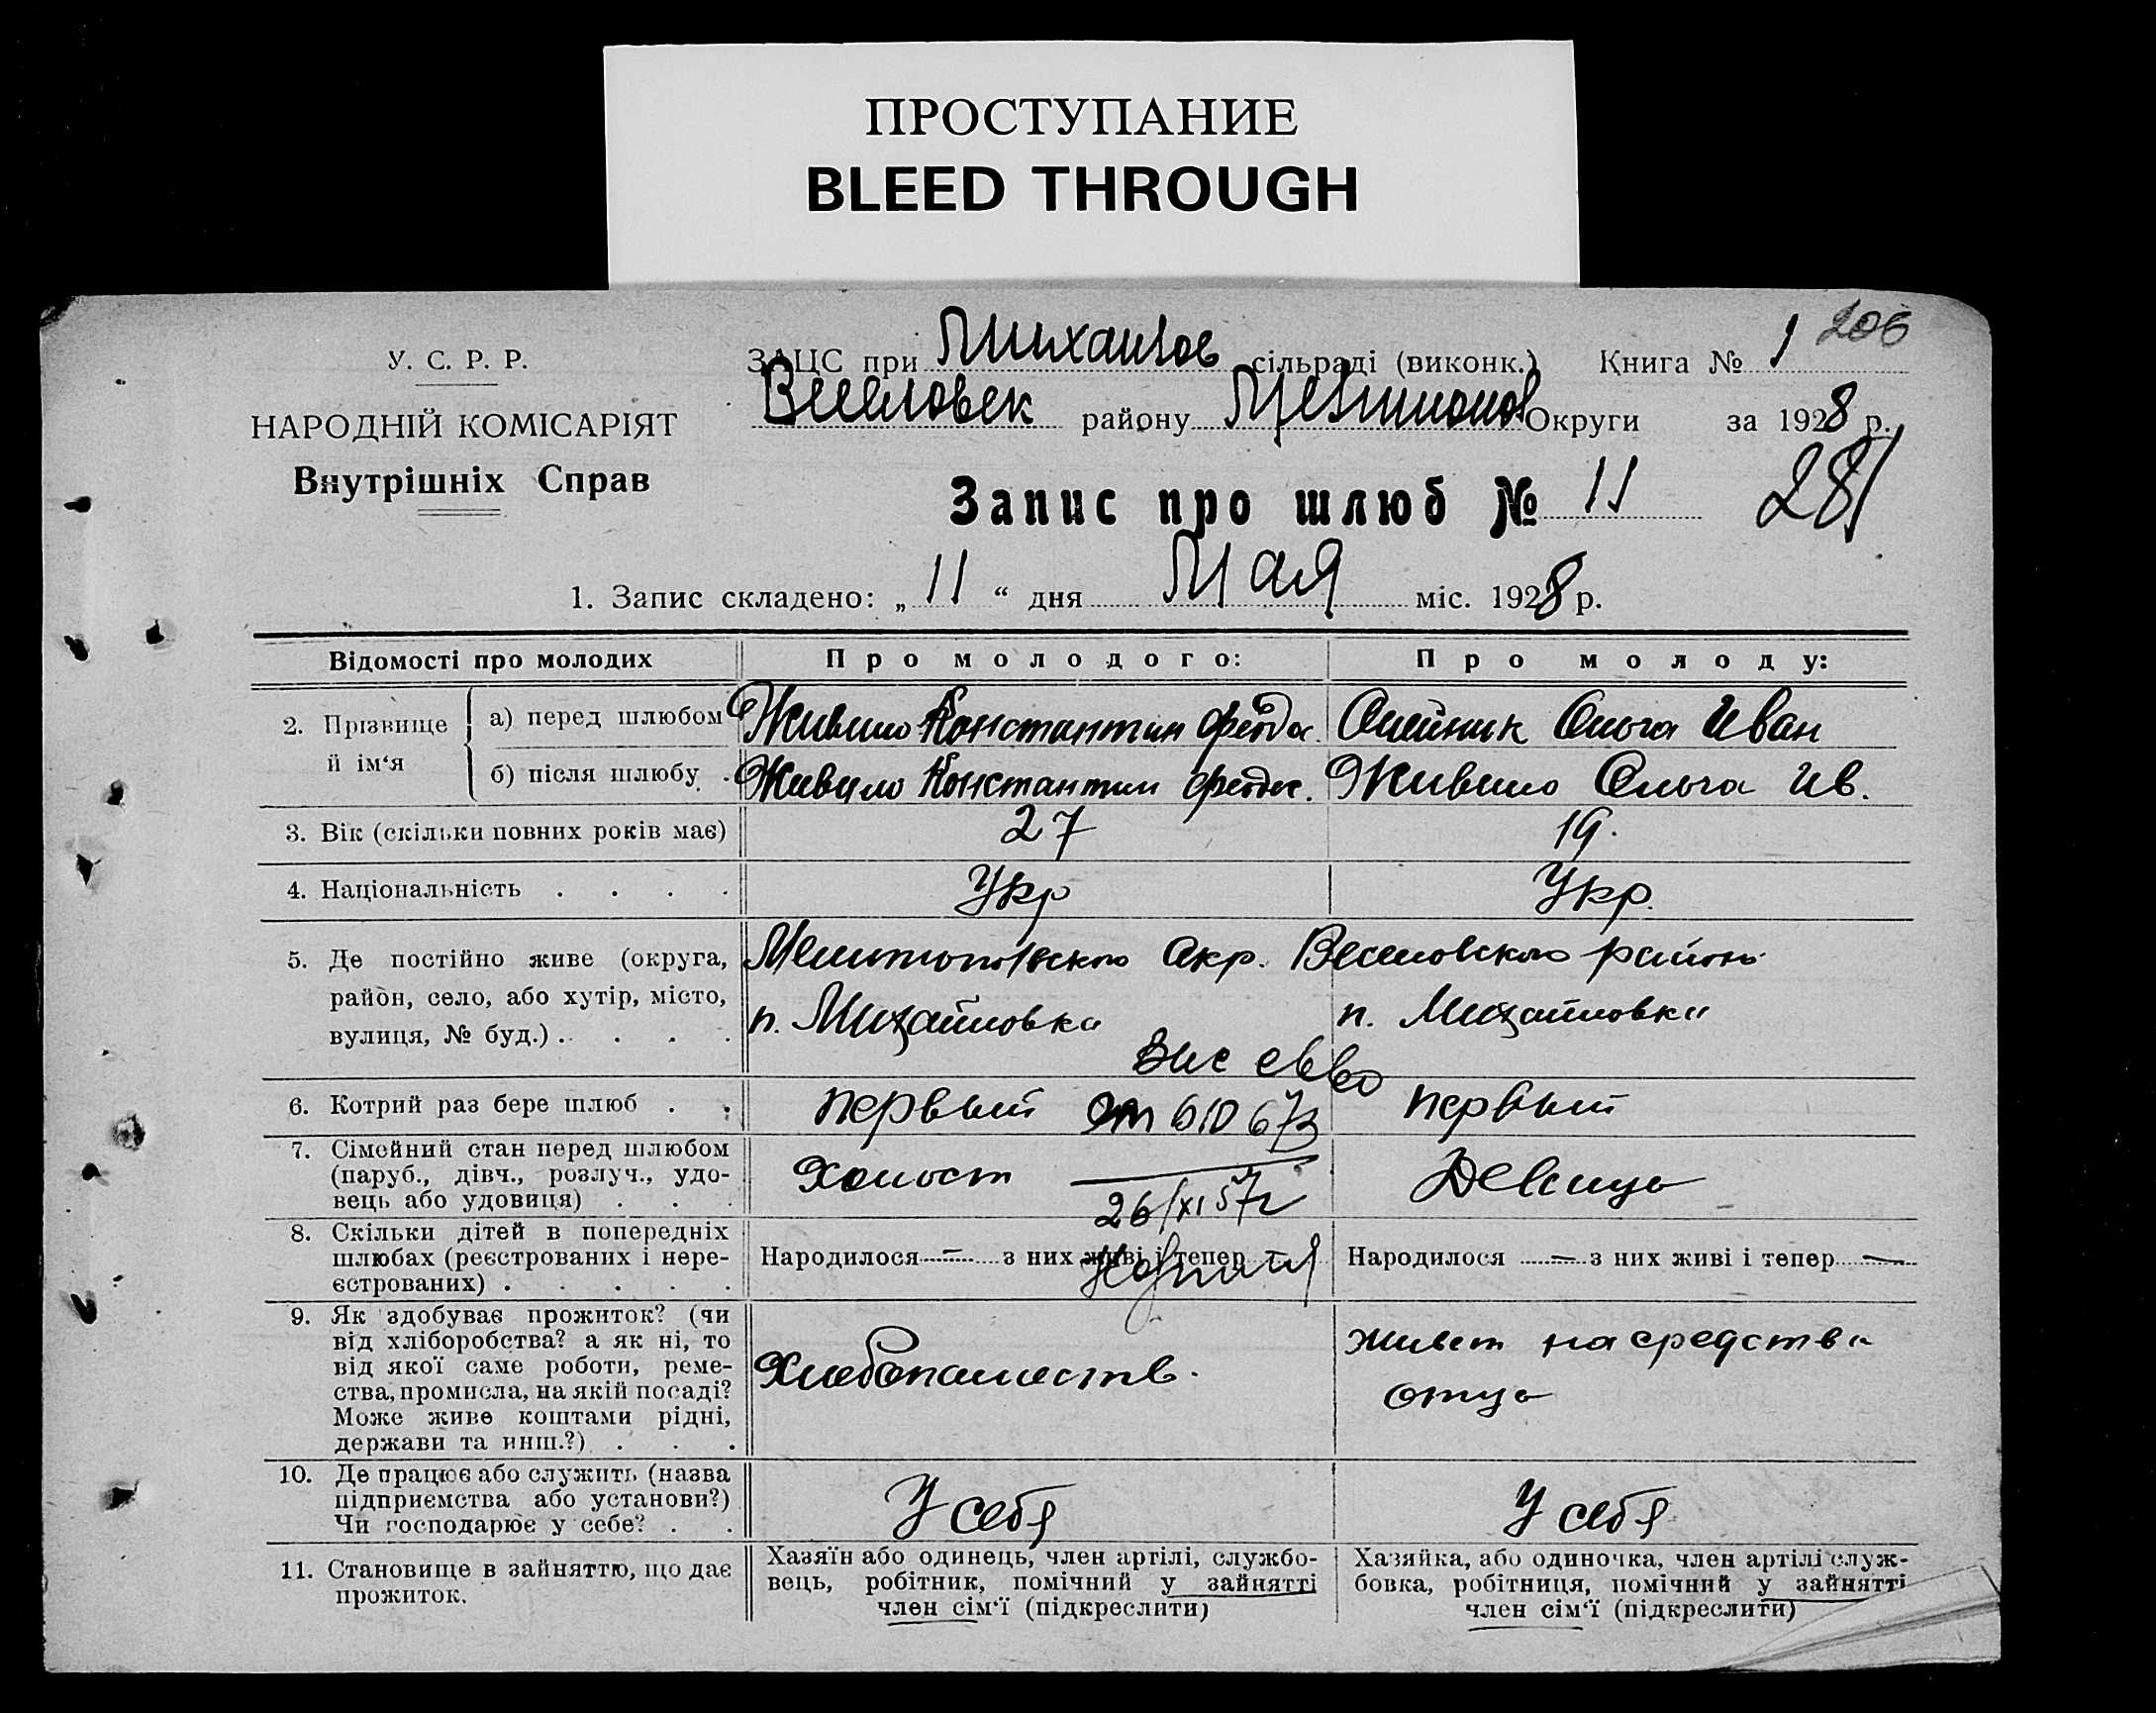 ПРОСТУПАНИЕ
BLEED THROUGH
206
У. С. Р. Р.
НАРОДНІЙ КОМІСАРІЯТ
Внутрішніх Справ
ЗАЦС при Михайлов сільраді (виконк.) Книга № 1
Веселовск району Округи за 1928 р.
Запис про шлюб № 11 281
1. Запис складено: „ 11 “ дня Мая міс. 1928 р.
Відомості про молодих Про молодого: Про молоду:
2. Прізвище й ім‘я
а) перед шлюбом Живило Константин Феодос. Олейник Ольга Иван
б) після шлюбу Живило Константин Феодос. Живило Ольга Ив.
3. Вік (скільки повних років має) 27 19.
4. Національність . . . . Укр Укр.
5. Де постійно живе (округа,
район, село, або хутір, місто,
вулиця, № буд.) . . . .
Мелитопольского Окр. Веселовского район
п. Михайловка п. Михайловка
6. Котрий раз бере шлюб . . первый первый
7. Сімейний стан перед шлюбом
(паруб., дівч., розлуч., удо-
вець або удовиця) . . .
Холост Девица
26/XI 57г
8. Скільки дітей в попередніх
шлюбах (реєстрованих і нере-
єстрованих) . . . . .
Народилося — з них живі і тепер — Народилося — з них живі і тепер —
9. Як здобуває прожиток? (чи
від хліборобства? а як ні, то
від якої саме роботи, реме-
ства, промисла, на якій посаді?
Може живе коштами рідні,
держави та инш.?) . . .
Хлебопашеств.
живет на средства
отца
10. Де працює або служить (назва
підприємства або установи?)
Чи господарює у себе? . .
У себя У себя
11. Становище в зайняттю, що дає
прожиток.
Хазяїн або одинець, член артілі, службо-
вець, робітник, помічний у зайнятті
член сім‘ї (підкреслити)
Хазяйка, або одиночка, член артілі служ-
бовка, робітниця, помічний у зайнятті
член сім‘ї (підкреслити)